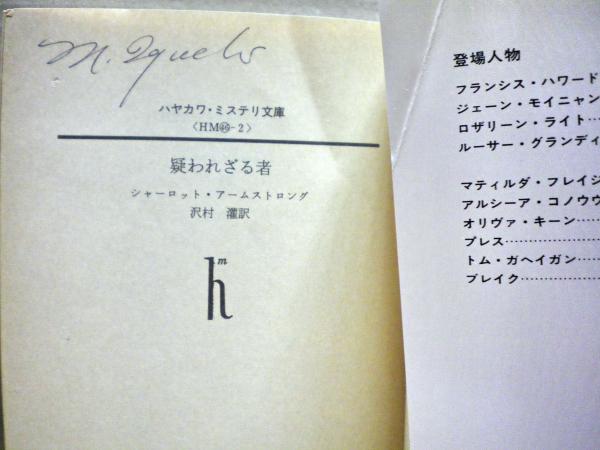 ハヤカワ・ミステリ文庫
〈HM㊻-2〉
疑われざる者
シャーロット・アームストロング
沢村 灌訳
hm
登場人物
フランシス・ハワード
ジェーン・モイニャン
ロザリーン・ライト…
ルーサー・グランディ
マティルダ・フレイジ
アルシーア・コノウウ
オリヴァ・キーン………
プレス………………………
トム・ガヘイガン……
ブレイク……………………